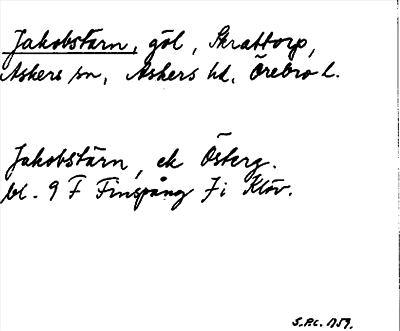 Jakobstärn, göl, Skrattorp,
Askers sn, Askers hd, Örebro l.
Jakobstärn, ek Österg.
bl. 9 F Finspång Ji Klöv.
S.P.C. 1759.